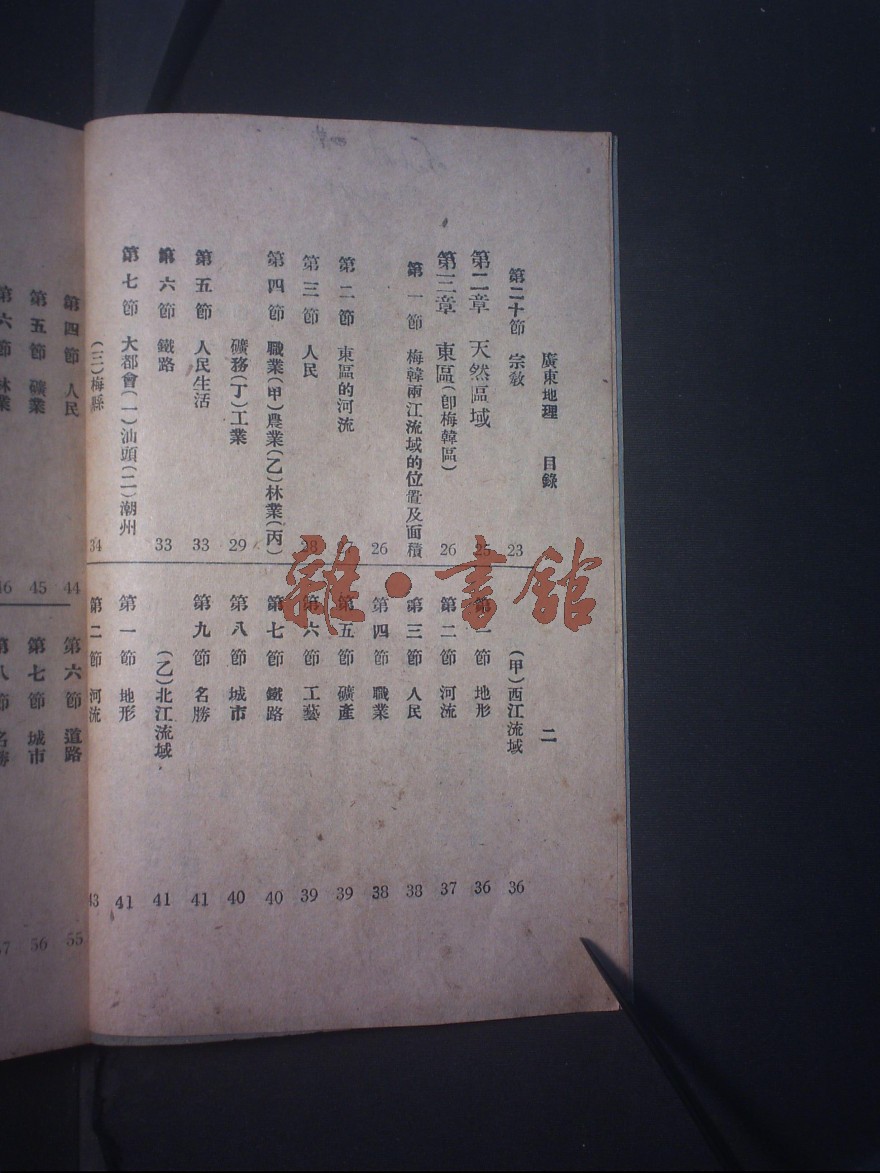 廣東地理 目錄 二
第二十節 宗教 23
第二章 天然區域 25
第三章 東區(卽梅韓區) 26
第一節 梅韓兩江流域的位置及面積
26
第二節 東區的河流 27
第三節 人民 28
第四節 職業(甲)農業(乙)林業(丙)
礦務(丁)工業 29
第五節 人民生活 33
第六節 鐵路 33
第七節 大都會(一)汕頭(二)潮州
(三)梅縣 34
(甲)西江流域 36
第一節 地形 36
第二節 河流 37
第三節 人民 38
第四節 職業 38
第五節 礦產 39
第六節 工藝 39
第七節 鐵路 40
第八節 城市 40
第九節 名勝 41
(乙)北江流域 41
第一節 地形 41
第二節 河流 43
第四節 人民 44
第五節 礦業 45
第六節 林業 46
第六節 道路 55
第七節 城市 56
第八節 名勝 57
雜·書館